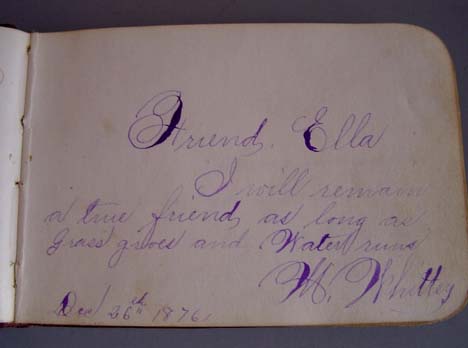 Friend, Ella
I will remain
a true friend as long as
Grass groes and Water runs
M. Whittey
Dec 26th 1876